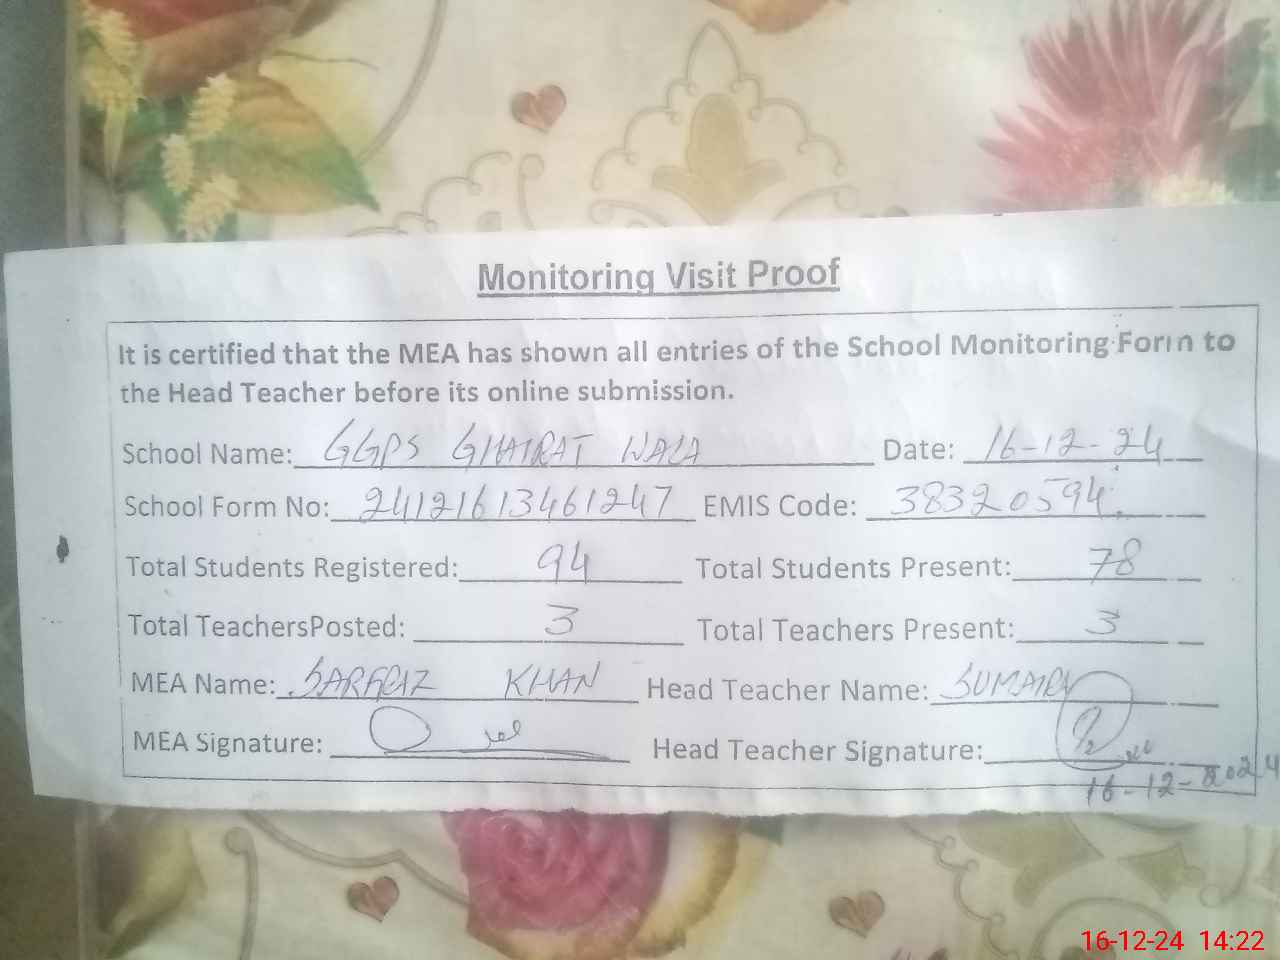 Monitoring Visit Proof
It is certified that the MEA has shown all entries of the School Monitoring Form to
the Head Teacher before its online submission.
School Name: GGPS GHAIRAT WALA Date: 16-12-24
School Form No: 24121613461247 EMIS Code: 38320594
Total Students Registered: 94 Total Students Present: 78
Total TeachersPosted: 3 Total Teachers Present: 3
MEA Name: SARFRAZ KHAN Head Teacher Name: SUMAIRA
MEA Signature: Head Teacher Signature:
16-12-2024
16-12-24 14:22